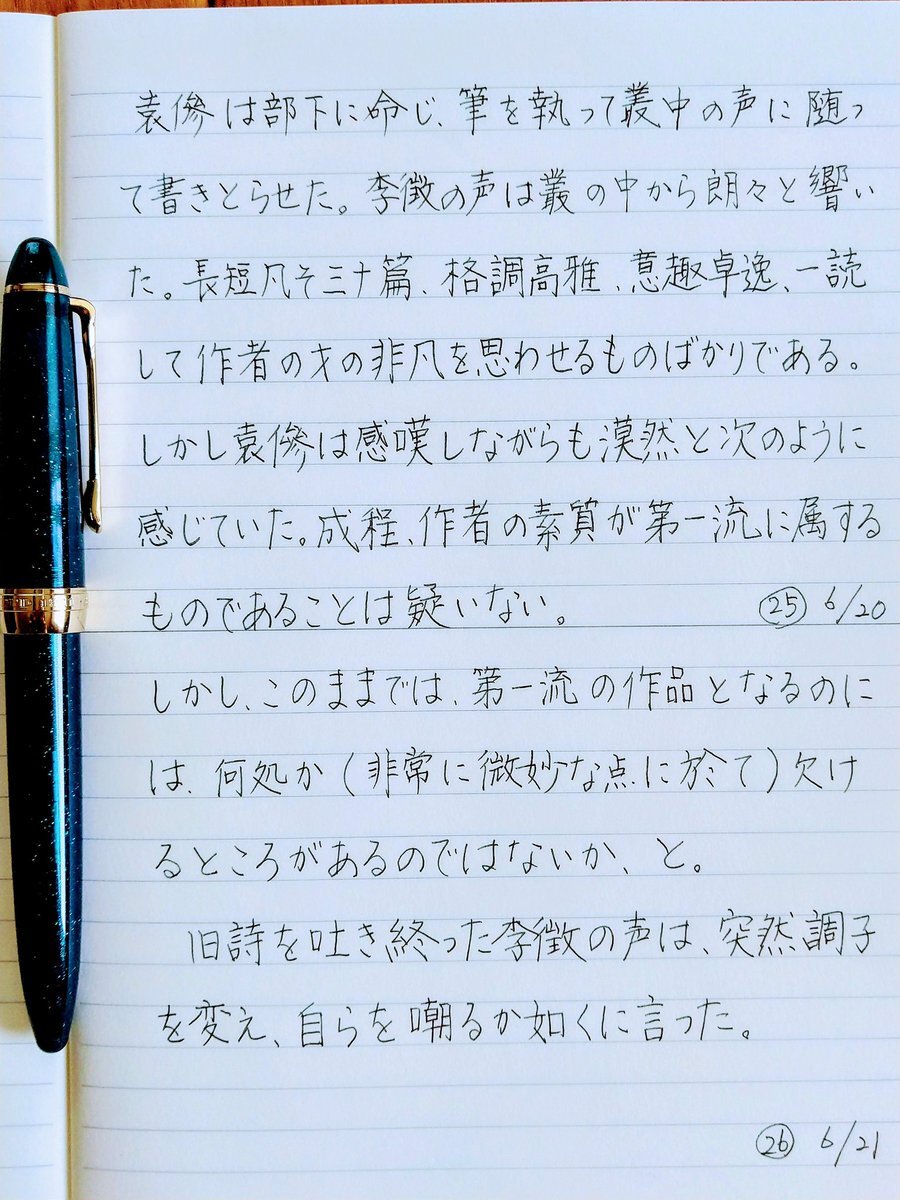 袁傪は部下に命じ、筆を執って叢中の声に随っ
て書きとらせた。李徴の声は叢の中から朗々と響い
た。長短凡そ三十篇、格調高雅、意趣卓逸、一読
して作者の才の非凡を思わせるものばかりである。
しかし袁傪は感嘆しながらも漠然と次のように
感じていた。成程、作者の素質が第一流に属する
ものであることは疑いない。
㉕ 6/20
しかし、このままでは、第一流の作品となるのに
は、何処か(非常に微妙な点に於て)欠け
るところがあるのではないか、と。
旧詩を吐き終った李徴の声は、突然調子
を変え、自らを嘲るか如くに言った。
㉖ 6/21